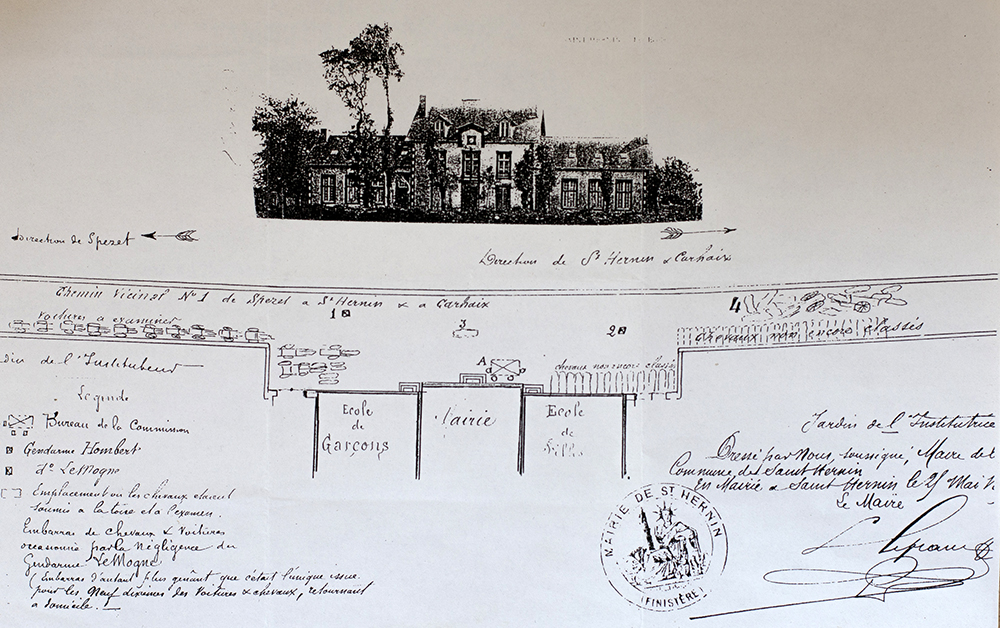 Direction de Spezet
Direction de St Hernin & Carhaix
Chemin Vicinal No 1 de Spezet a St Hernin & a Carhaix
1
2
3
4
voitures a examiner
chevaux non encore classés
chevaux non encore classés
A
din de l'Instituteur
Ecole
de
Garçons
Mairie
Ecole
de
Filles
Jardin de l'Institutrice
Légende
Bureau de la Commission
Gendarme Hombert
do LeMogne
Emplacement où les chevaux étaient
soumis a la toise et a l'examen.
Embarras de chevaux & Voitures
occasionné par la négligence du
Gendarme LeMogne
(Embarras d'autant plus gênant que c'était l'unique issue
pour les Neuf dixièmes des Voitures & chevaux, retournant
a domicile.
Dressé par Nous, soussigné, Maire de l
Commune de Saint Hernin
En Mairie a Saint Hernin le 25 Mai
Le Maire
MAIRIE DE ST HERNIN
(FINISTÈRE)